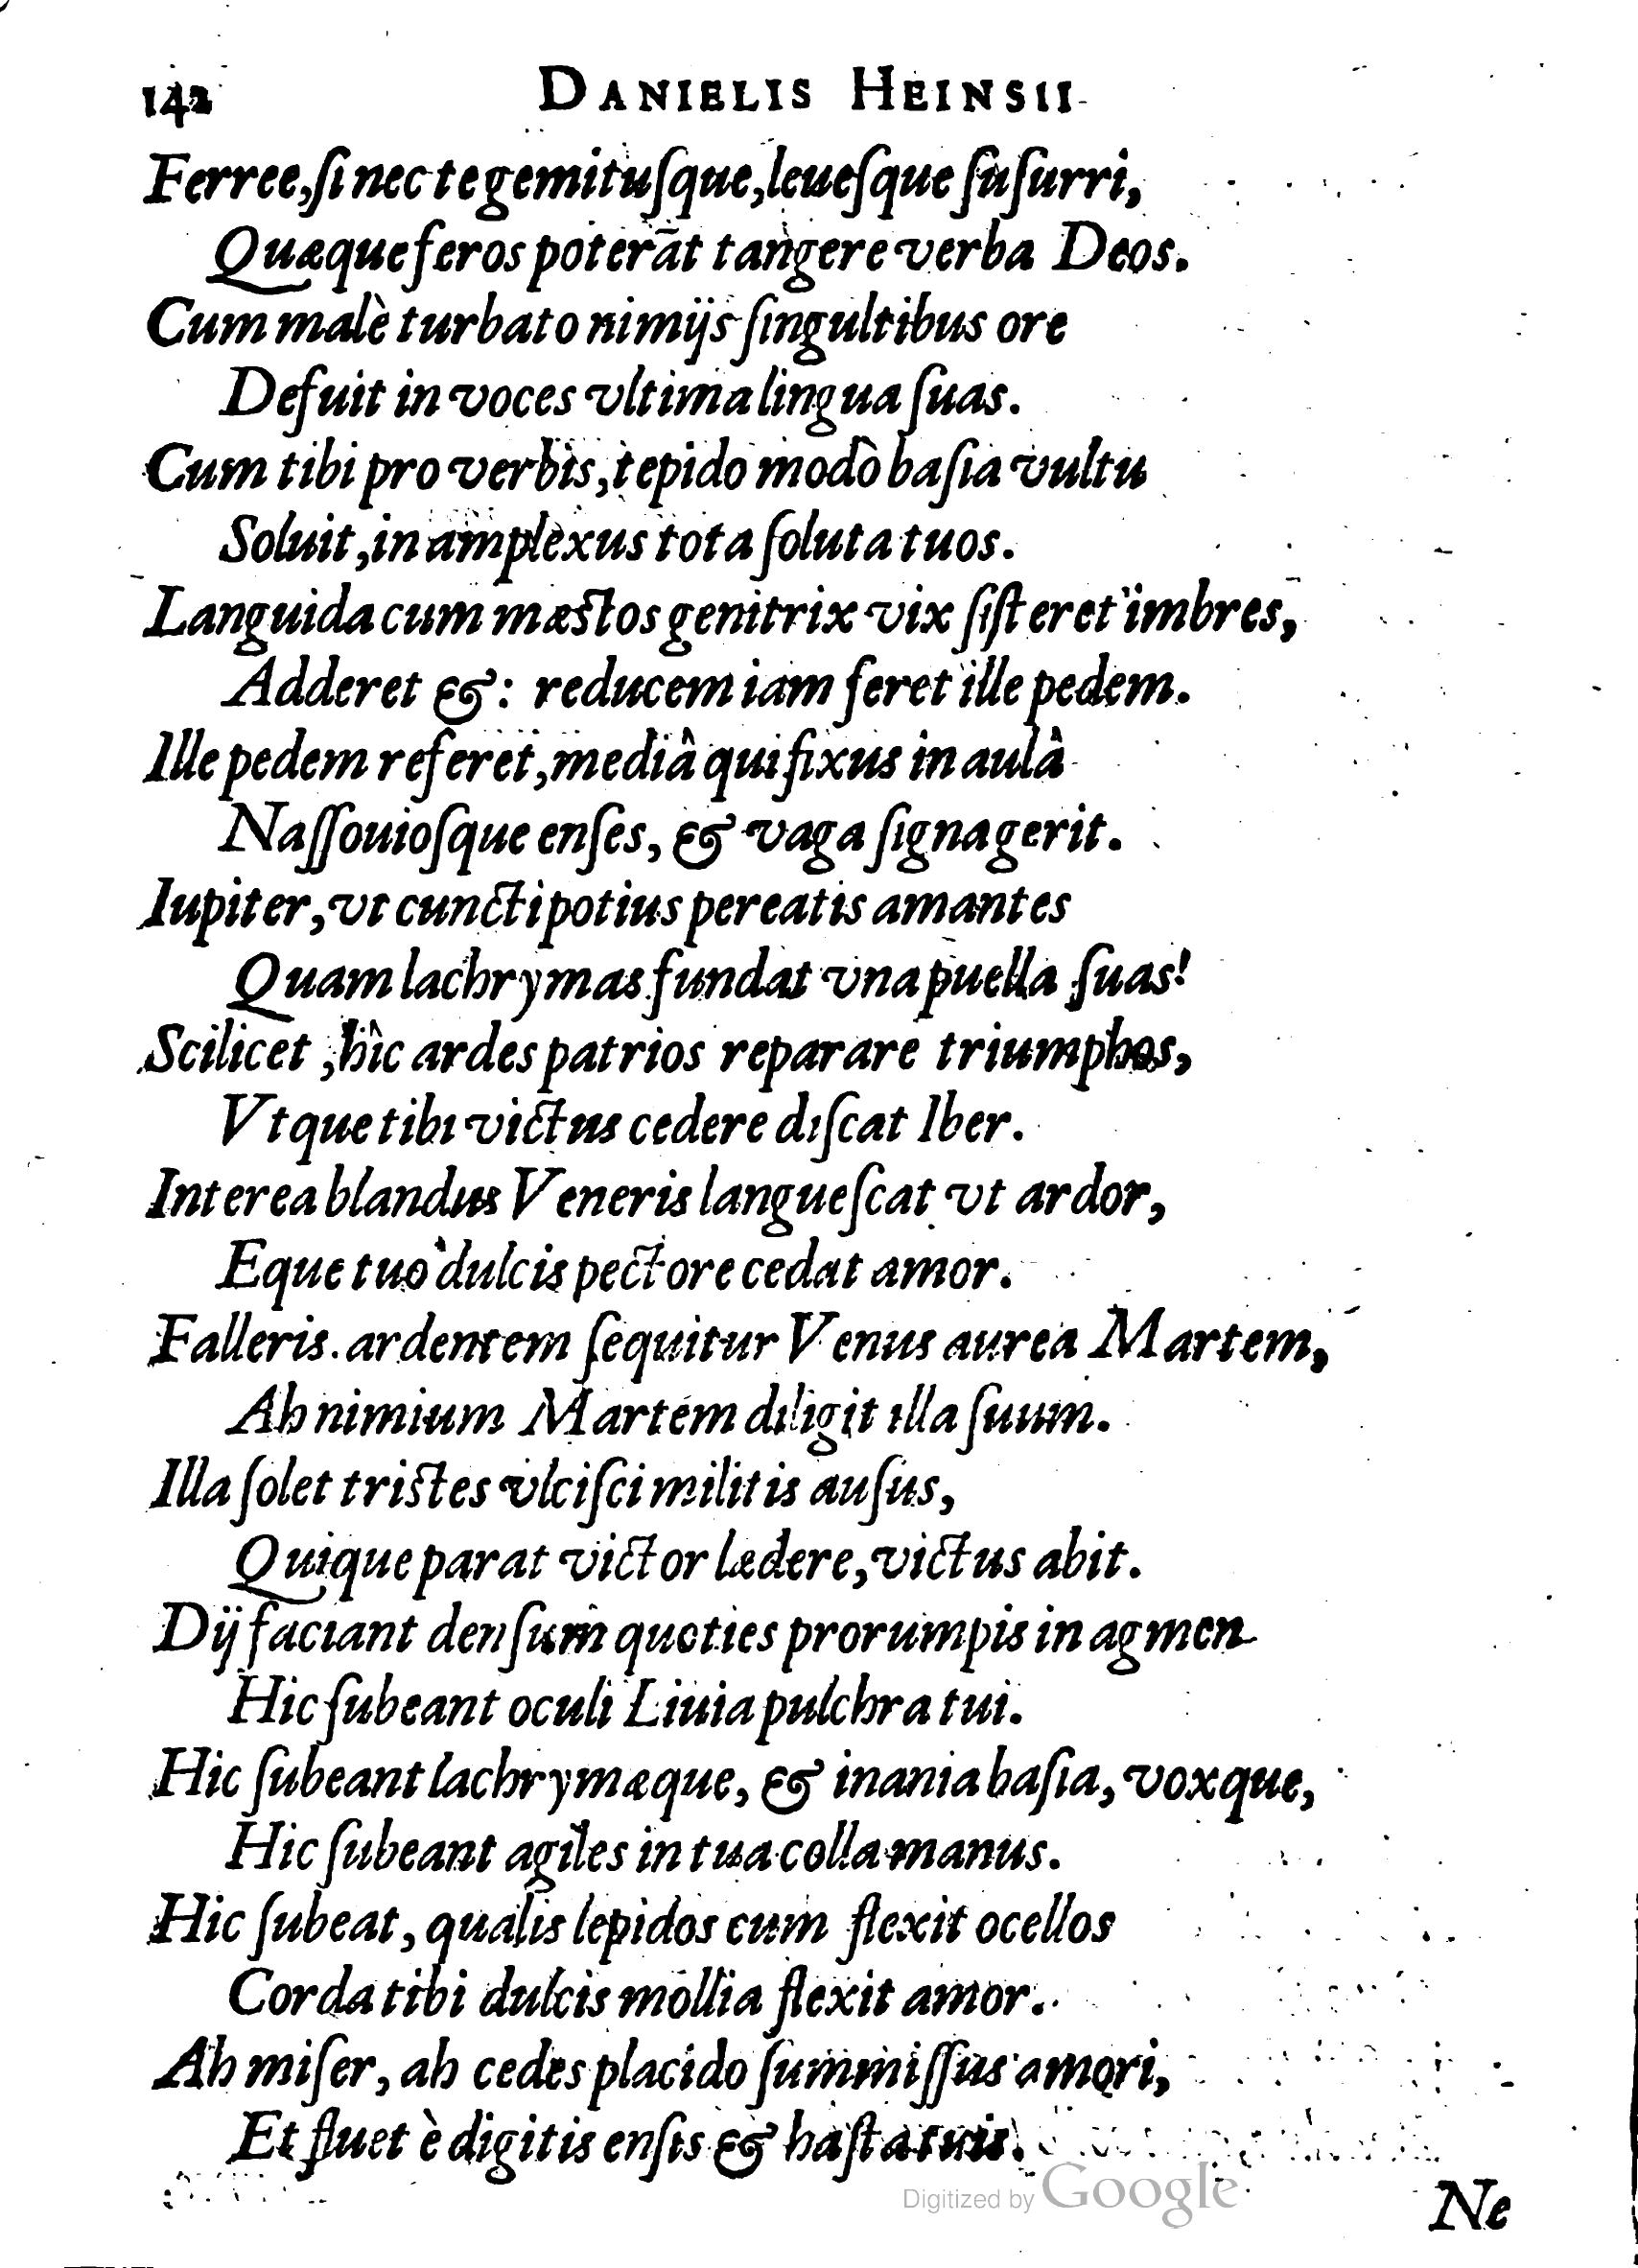 142 DANIELIS HEINSII
Ferree, ſi nec te gemituſque, leueſque ſuſurri,
Quæque feros poterãt tangere verba Deos.
Cum malè turbato nimijs ſingultibus ore
Defuit in voces vltima lingua ſuas.
Cum tibi pro verbis, tepido modò baſia vultu
Soluit, in amplexus tota ſoluta tuos.
Languida cum mæstos genitrix vix ſiſteret imbres,
Adderet &: reducem iam feret ille pedem.
Ille pedem referet, mediâ qui fixus in aulâ
Naſſouioſque enſes, & vaga ſigna gerit.
Iupiter, vt cuncti potius pereatis amantes
Quam lachrymas fundat vna puella ſuas!
Scilicet, hîc ardes patrios reparare triumphos,
Vtque tibi victus cedere diſcat Iber.
Interea blandus Veneris langueſcat vt ardor,
Eque tuo dulcis pectore cedat amor.
Falleris. ardentem ſequitur Venus aurea Martem,
Ah nimium Martem diligit illa ſuum.
Illa ſolet tristes vlciſci militis auſus,
Quique parat victor lædere, victus abit.
Dij faciant denſum quoties prorumpis in agmen
Hic ſubeant oculi Liuia pulchra tui.
Hic ſubeant lachrymæque, & inania baſia, voxque,
Hic ſubeant agiles in tua colla manus.
Hic ſubeat, qualis lepidos cum flexit ocellos
Corda tibi dulcis mollia flexit amor.
Ah miſer, ah cedes placido ſummiſſus amori,
Et fluet è digitis enſis & haſta tuis.
Digitized by Google
Ne